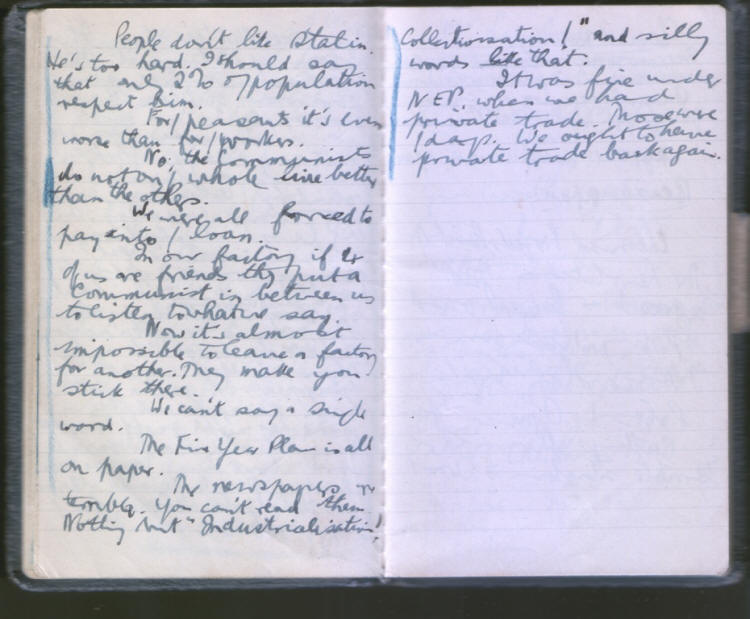 People don't like Stalin.
He's too hard. I should say
that only 2% o/ population
respect him.
For / peasants it's even
worse than for / workers.
No. the Communists
do not on / whole live better
than the others.
We were all forced to
pay into / loan.
In our factory if 4
of us are friends they put a
Communist in between us
to listen to what we say.
Now it's almost
impossible to leave a factory
for another. They make you
stick there.
We can't say a single
word.
The Five Year Plan is all
on paper.
The newspapers are
terrible. You can't read them.
Nothing but "Industrialisation!
Collectivisation!" and silly
words like that.
It was fine under
NEP. when we had
private trade. Those were
/ days. We ought to have
private trade back again.